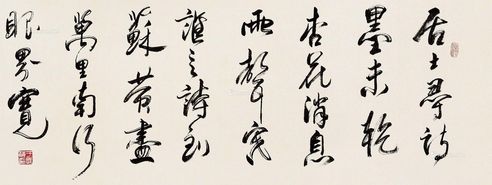 居士尋詩
墨未乾
杏花消息
雨聲寒
誰言詩到
蘇黃盡
萬里南行
眼界寬